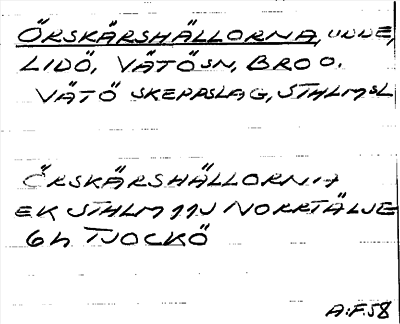 ÖRSKÄRSHÄLLORNA, UDDE,
LIDÖ, VÄTÖ SN, BRO O.
VÄTÖ SKEPPSLAG, STHLMS L
ÖRSKÄRSHÄLLORNA
EK STHLM 11J NORRTÄLJE
6h TJOCKÖ
A:F.58